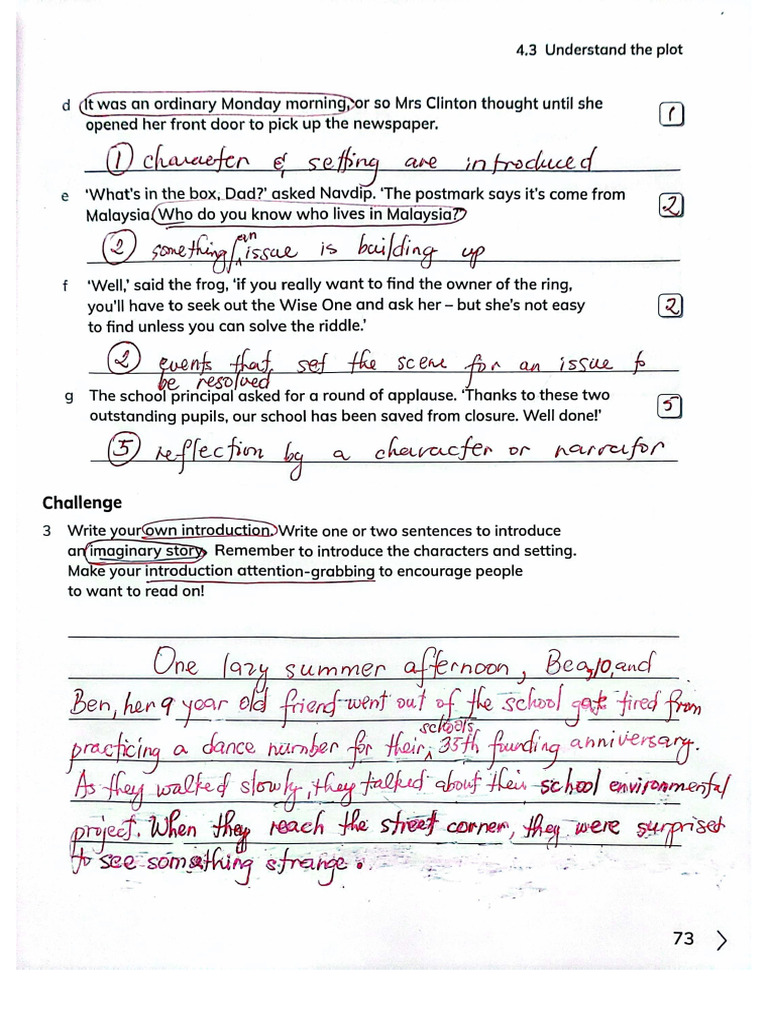 4.3 Understand the plot
d It was an ordinary Monday morning, or so Mrs Clinton thought until she 1
opened her front door to pick up the newspaper.
① character & setting are introduced
e 'What's in the box, Dad?' asked Navdip. 'The postmark says it's come from 2
Malaysia. Who do you know who lives in Malaysia?'
② something/an issue is building up
f 'Well,' said the frog, 'if you really want to find the owner of the ring,
you'll have to seek out the Wise One and ask her – but she's not easy 2
to find unless you can solve the riddle.'
② events that set the scene for an issue to
be resolved
g The school principal asked for a round of applause. 'Thanks to these two 5
outstanding pupils, our school has been saved from closure. Well done!'
⑤ reflection by a character or narrator
Challenge
3 Write your own introduction. Write one or two sentences to introduce
an imaginary story. Remember to introduce the characters and setting.
Make your introduction attention-grabbing to encourage people
to want to read on!
One lazy summer afternoon, Bea, 10, and
Ben, her 9 year old friend went out of the school gate tired from
practicing a dance number for their school's 35th funding anniversary.
As they walked slowly, they talked about their school environmental
project. When they reach the street corner, they were surprised
to see something strange.
73